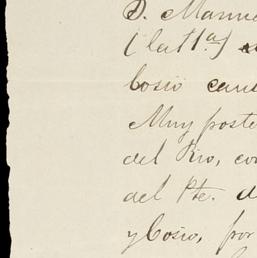 D. Manue
(lat 1ª)
Cosio can
Muy poste
del Rio, co
del Pte. d
y Cosio, por